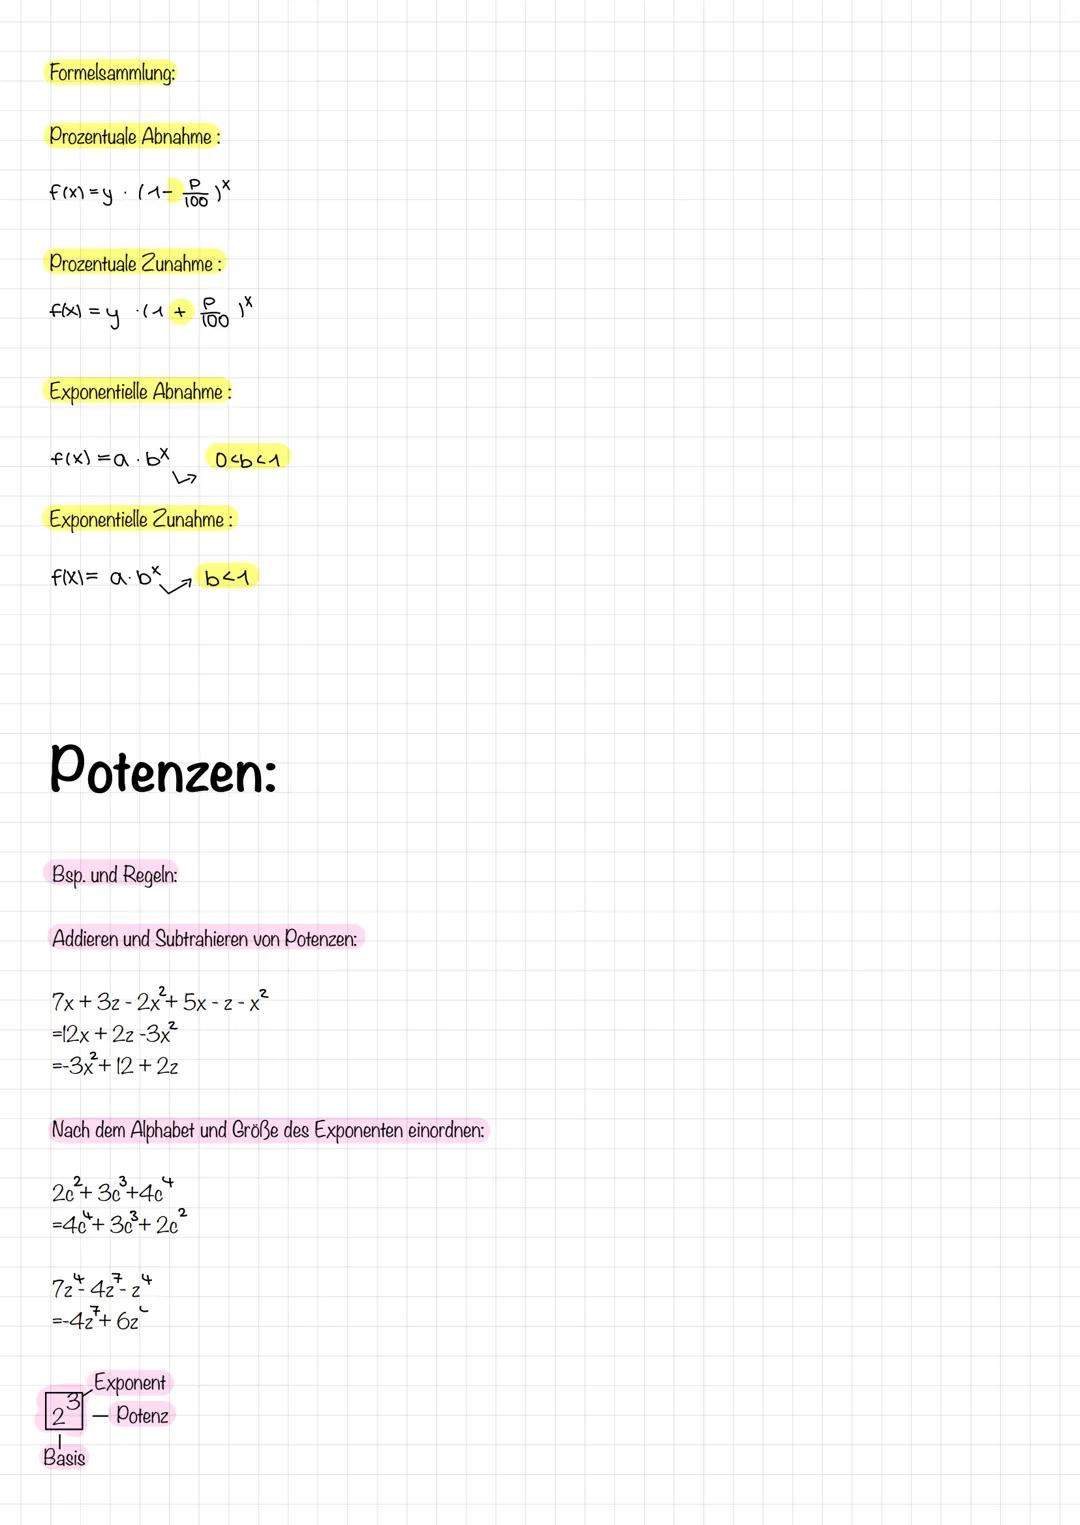 Formelsammlung:
Prozentuale Abnahme :
f(x) = y · (1 - p/100)^x
Prozentuale Zunahme :
f(x) = y · (1 + p/100)^x
Exponentielle Abnahme :
f(x) = a · b^x 0<b<1
Exponentielle Zunahme :
f(x) = a · b^x b<1
Potenzen:
Bsp. und Regeln:
Addieren und Subtrahieren von Potenzen:
7x + 3z - 2x² + 5x - z - x²
=12x + 2z -3x²
=-3x² + 12 + 2z
Nach dem Alphabet und Größe des Exponenten einordnen:
2c² + 3c³ +4c⁴
=4c⁴ + 3c³ + 2c²
7z⁴ - 4z⁷ - z⁴
=-4z⁷ + 6z
Exponent
2³
Potenz
Basis